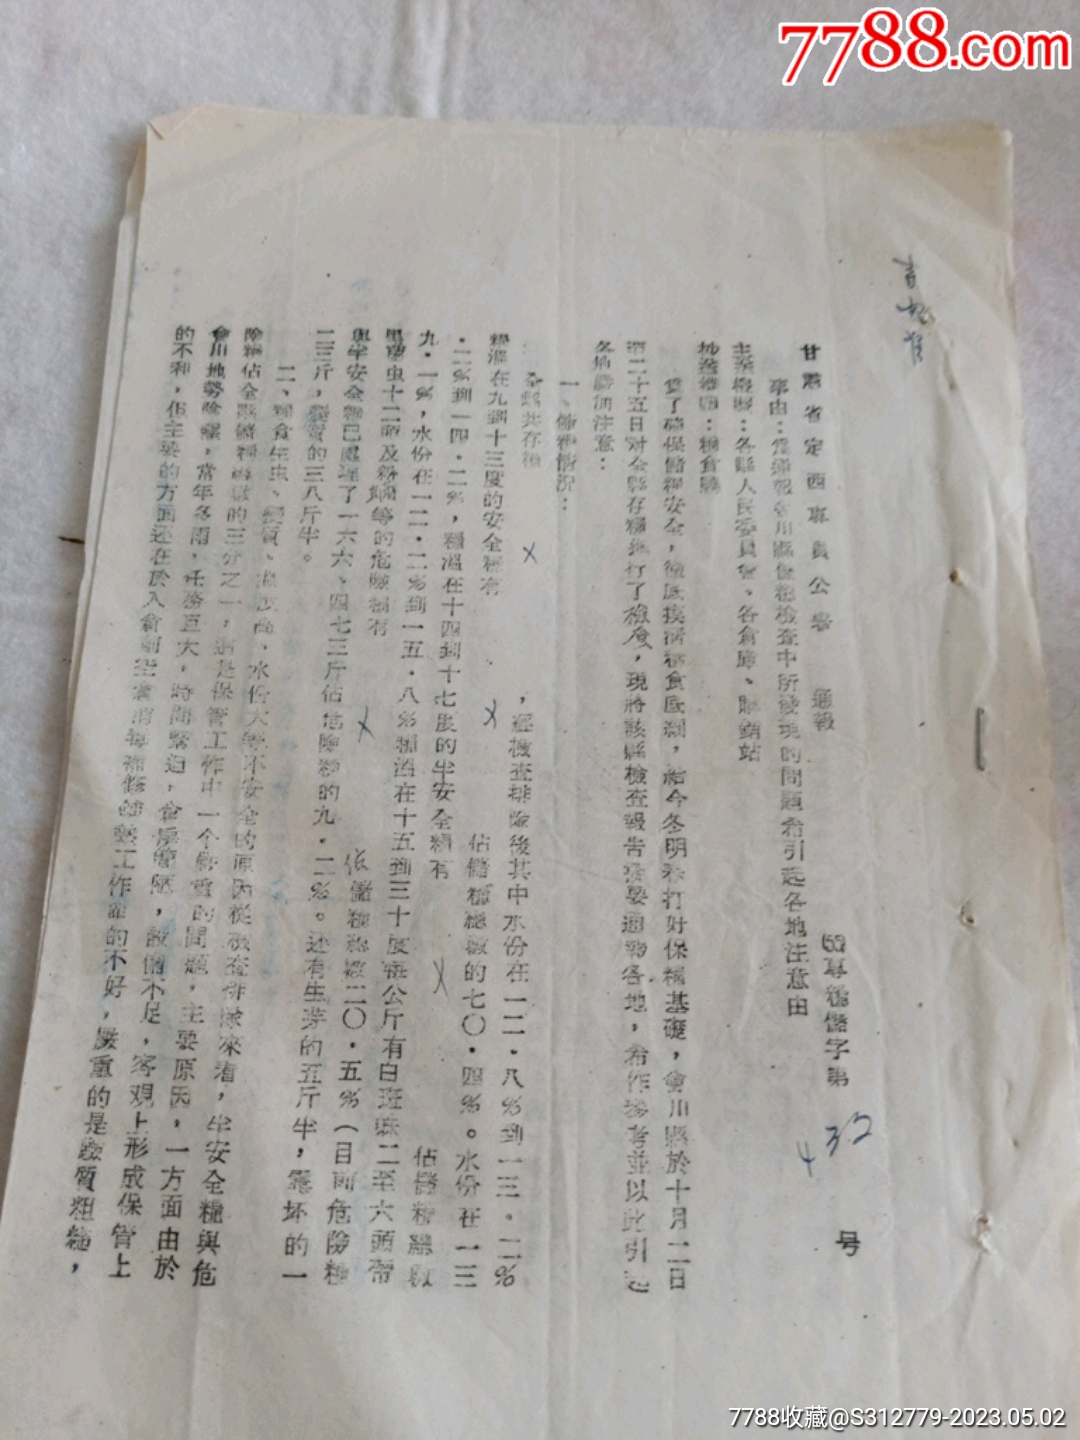 7788.com
甘肅省定西專員公署 通報
專糧儲字第432号
事由：為通報會川縣儲糧檢查中所發現的問題希引起各地注意由
主送機關：各縣人民委員會、各倉庫、購銷站
抄送機關：糧食廳
為了確保儲糧安全，徹底摸清糧食底潤，給今冬明春打好保糧基礎，會川縣於十月二日
至二十五日对全縣存糧進行了檢查，現將該縣檢查報告摘要通報各地，希作參考並以此引起
各地勝加注意：
一、儲糧情况：
全縣共存糧 ，經檢查排除後其中水份在一二·八%到一三·二%
糧温在九到十三度的安全糧有 佔儲糧總數的七〇·四%。水份在一三
·二%到一四·二%，糧温在十四到十七度的半安全糧有 佔儲糧總數
九·一%，水份在一二·二%到一五·八%糧温在十五到三十度每公斤有白斑蛛二至六頭帶
甲虫十二頭及粉螨等的危險糧有 佔儲糧總數二〇·五%（目前危險糧
與半安全糧已處理了一六六、四七三斤佔危險糧的九·二%。还有生芽的五斤半，霉坏的一
二三斤，變質的三八斤半。
二、糧食生虫、變質、温度高、水份大等不安全的原因從檢查排除來看，半安全糧與危
險糧佔全縣儲糧總數的三分之一，這是保管工作中一个嚴重的問題，主要原因，一方面由於
會川地勢陰濕，常年多雨，任務巨大，時間緊迫，倉房簡陋，設備不足，客观上形成保管上
的不利，但主要的方面还在於入倉前空倉消毒補修鋪墊工作做的不好，嚴重的是驗質粗糙，
7788收藏@S312779-2023.05.02